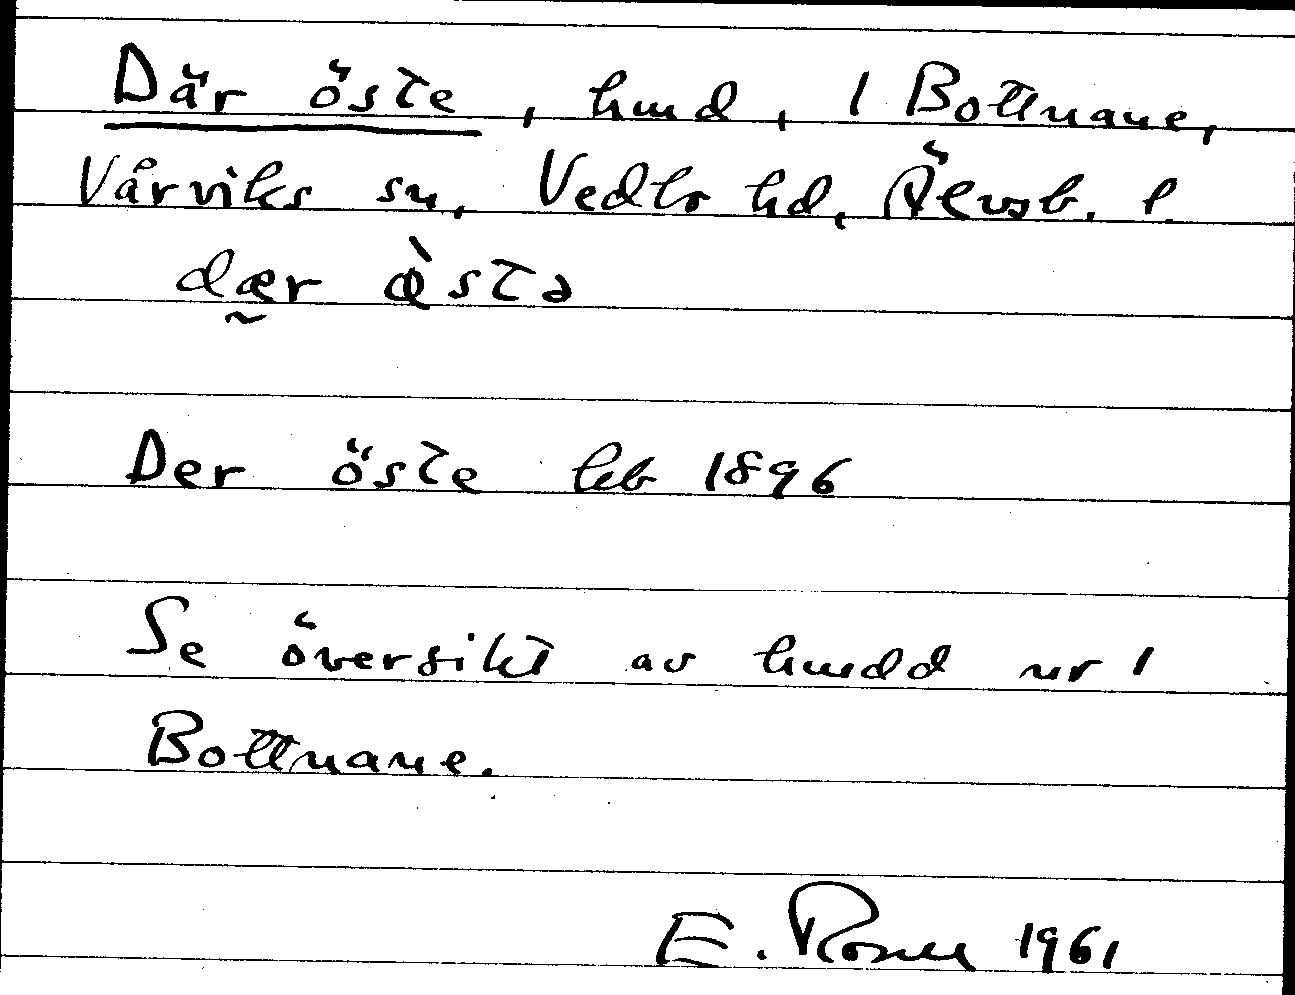 Där öste, hmd, 1 Bottnane,
Vårviks sn, Vedbo hd, Älvsb. l.
dær œ̀stə
Der öste lcb 1896
Se översikt av hmdd nr 1
Bottnane.
E. Rosell 1961